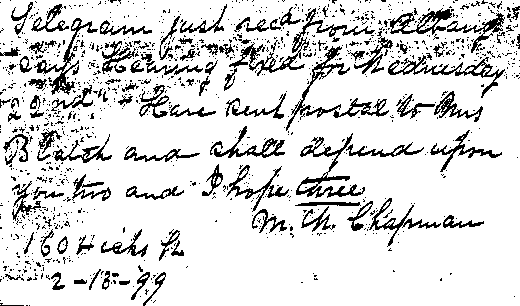 Telegram just recd from Albany
says Hearing fixed for Wednesday
22nd." Have sent postal to Mrs
Blatch and shall depend upon
you two and I hope three
M. A. Chapman
160 Hicks St
2-18-99